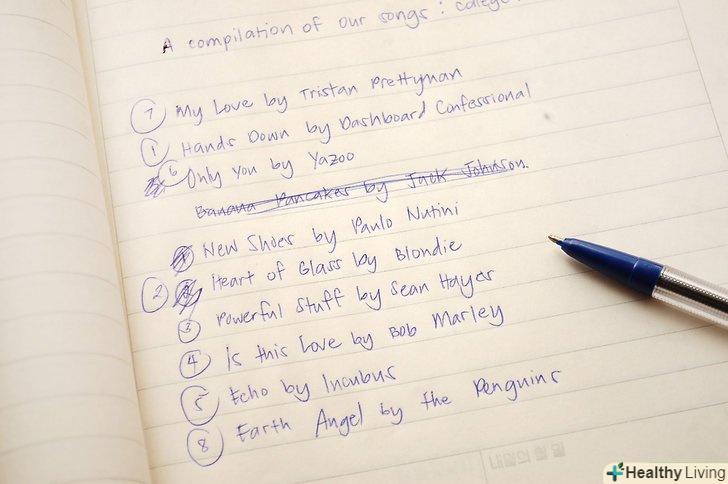 A compilation of our songs: college
7 My Love by Tristan Prettyman
1 Hands Down by Dashboard Confessional
6 Only You by Yazoo
Banana Pancakes by Jack Johnson
New Shoes by Paulo Nutini
2 Heart of Glass by Blondie
3 Powerful Stuff by Sean Hayes
4 Is this Love by Bob Marley
5 Echo by Incubus
8 Earth Angel by the Penguins
내일의 할 일
Healthy Living